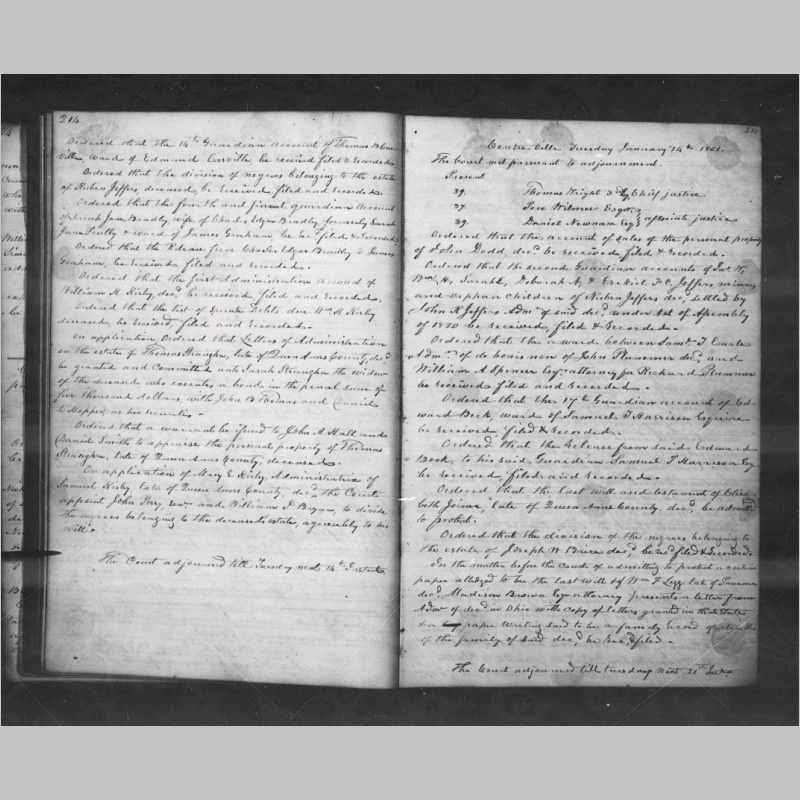 214
Ordered that the 14th Guardian account of Thomas B
ville, ward of Edmund Carville be received filed & recorded.
Ordered that the division of negroes belonging to the estate
of Richa Jeffers, deceased, be received, filed and recorded.
Ordered that the fourth and final guardian account
of Sarah Jane Bradley, wife of Charles Edgar Bradley, formerly Sarah
Jane & ward of James Graham, be rec.d filed & recorded.
Ordered that the Release from Charles Edgar Bradley to James
Graham, be received filed and recorded.
Ordered that the first Administration account of
William H. Kirby, dec.d be received filed and recorded.
Ordered that the list of Sperate Debts due Wm. H. Kirby
deceased, be received filed and recorded.
On application Ordered that Letters of Administration
on the estate of Thomas Straughn, late of Queen Anns County, dec.d
be granted and Committed unto Sarah Straughn the widow
of the deceased who executes a bond in the penal sum of
five thousand dollars, with John B Thomas and Daniel
C Hopper as her securities.
Ordered that a warrant be issued to John A. Hall and
Daniel Smith to appraise the personal property of Thomas
Straughn, late of Queen Anns County, deceased.
On application of Mary E. Kirby Administratrix of
Samuel Kirby, late of Queen Anns County, dec.d the Court
appoint John Perry, Sen.r and William J. Bryan, to divide
the negroes belonging to the deceaseds estate, agreeably to his
Will.
The Court adjourned till Tuesday next 14th Instant
Centre Ville Tuesday January 14th 1851.
The Court met pursuant to adjournment.
Present
39. Thomas Wright 3d Esq. Chief justice
37. Pere Wilmer Esqr.
39. Daniel Newnam Esq. associate justices
Ordered that the account of sales of the personal property
of John Dodd, dec.d be received filed & recorded.
Ordered that the second Guardian accounts of
Wm. H., Sarah E., Deborah A. & Ezekiel F. C. Jeffers, minors
and orphan children of Richa Jeffers dec.d, settled by
John K Jeffers Adm.r of said dec.d under act of Assembly
of 1830 be received, filed & Recorded.
Ordered that the award between Saml. T Earle
Adm.r of de bonis non of John Plummer dec.d and
William A Spencer Esqr. attorney for Richard Plummer
be received filed and recorded.
Ordered that the 17th Guardian account of Ed-
ward Beck ward of Samuel T Harrison Esquire
be received filed & recorded.
Ordered that the Release from said Edward
Beck, to his said Guardian Samuel T Harrison Esq
be received filed and recorded.
Ordered that the last will and testament of Eliza-
beth Joiner, late of Queen Anns County, dec.d be admitted
to probat.
Ordered that the division of the negroes belonging to
the estate of Joseph W Brice dec.d be rec.d filed & recorded
In the matter before the Court of admitting to probat a certain
paper alledged to be the last will of Wm. F late of
dec.d Madison Brown Esqr attorney presents a letter from
Adm.r of dec.d in Ohio with copy of letters granted in that State
& a paper writing said to be a family record
of the family of said dec.d be Rec.d & filed.
The Court adjourned till tuesday next 21st Inst.